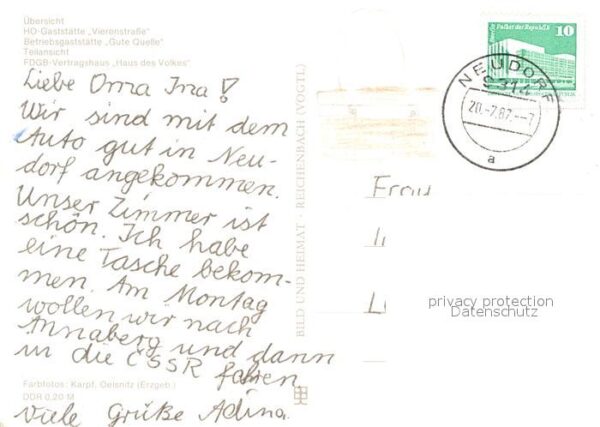 Übersicht
HO-Gaststätte „Vierenstraße"
Betriebsgaststätte „Gute Quelle"
Teilansicht
FDGB-Vertragshaus „Haus des Volkes"
Liebe Oma Ina!
Wir sind mit dem
Auto gut in Neu-
dorf angekommen.
Unser Zimmer ist
schön. Ich habe
eine Tasche bekom-
men. Am Montag
wollen wir nach
Annaberg und dann
in die ČSSR fahren
Viele Grüße Adina.
Farbfotos: Karpf, Oelsnitz (Erzgeb.)
DDR 0,20 M
BILD UND HEIMAT · REICHENBACH (VOGTL)
Palast der Republik 10
NEUDORF
9314
20.-7.87.--7
a
Frau
privacy protection
Datenschutz